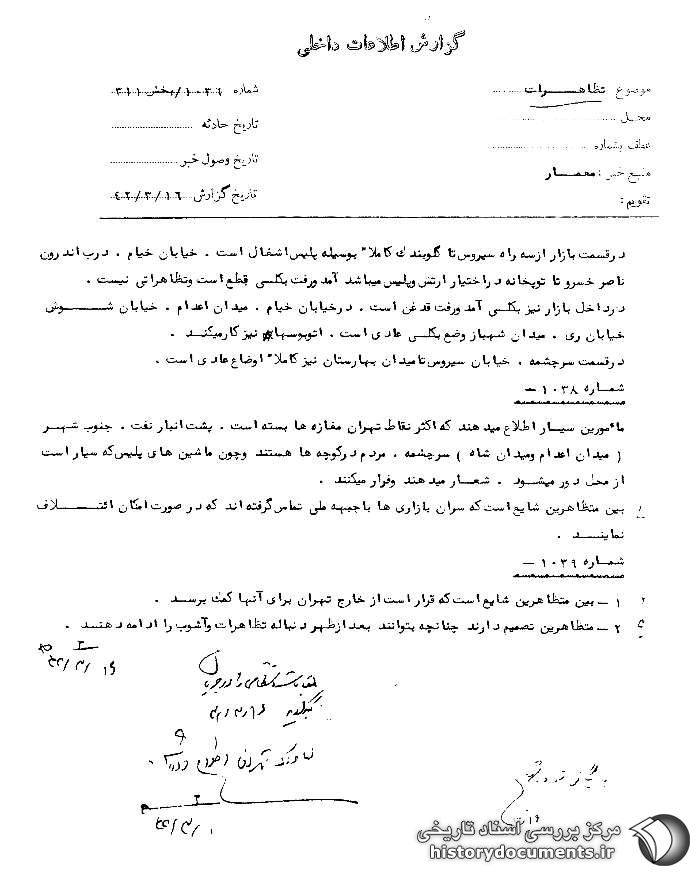 گزارش اطلاعات داخلی
موضوع تظاهرات
محل
عطف بشماره
منبع خبر : معمار
تقویم :
شماره ۱۰۳۶/بخش ۳۱۱
تاریخ حادثه
تاریخ وصول خبر
تاریخ گزارش ۴۲/۳/۱۶
در قسمت بازار از سه راه سیروس تا گلوبندک کاملاً بوسیله پلیس اشغال است . خیابان خیام . درب اندرون
ناصر خسرو تا توپخانه در اختیار ارتش و پلیس میباشد آمد ورفت بکلی قطع است و تظاهراتی نیست .
در داخل بازار نیز بکلی آمد ورفت قدغن است . در خیابان خیام . میدان اعدام . خیابان شوش
خیابان ری . میدان شهباز وضع بکلی عادی است . اتوبوسها نیز کار میکنند .
در قسمت سرچشمه . خیابان سیروس تا میدان بهارستان نیز کاملاً اوضاع عادی است .
شماره ۱۰۳۸ –
مأمورین سیار اطلاع میدهند که اکثر نقاط تهران مغازه ها بسته است . پشت انبار نفت . جنوب شهر
( میدان اعدام و میدان شاه ) سرچشمه . مردم در کوچه ها هستند و چون ماشین های پلیس که سیار است
از محل دور میشود . شعار میدهند و فرار میکنند .
بین متظاهرین شایع است که سران بازاری ها با جبهه ملی تماس گرفته اند که در صورت امکان ائتلاف
نمایند .
شماره ۱۰۳۹ –
۱ – بین متظاهرین شایع است که قرار است از خارج تهران برای آنها کمک برسد .
۲ – متظاهرین تصمیم دارند چنانچه بتوانند بعد از ظهر دنباله تظاهرات و آشوب را ادامه دهند .
۴۲/۳/۱۶
مرکز بررسی اسناد تاریخی
historydocuments.ir